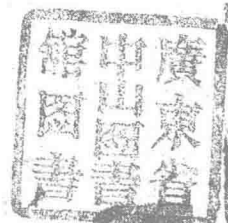 廣東省
中山圖書
館圖書